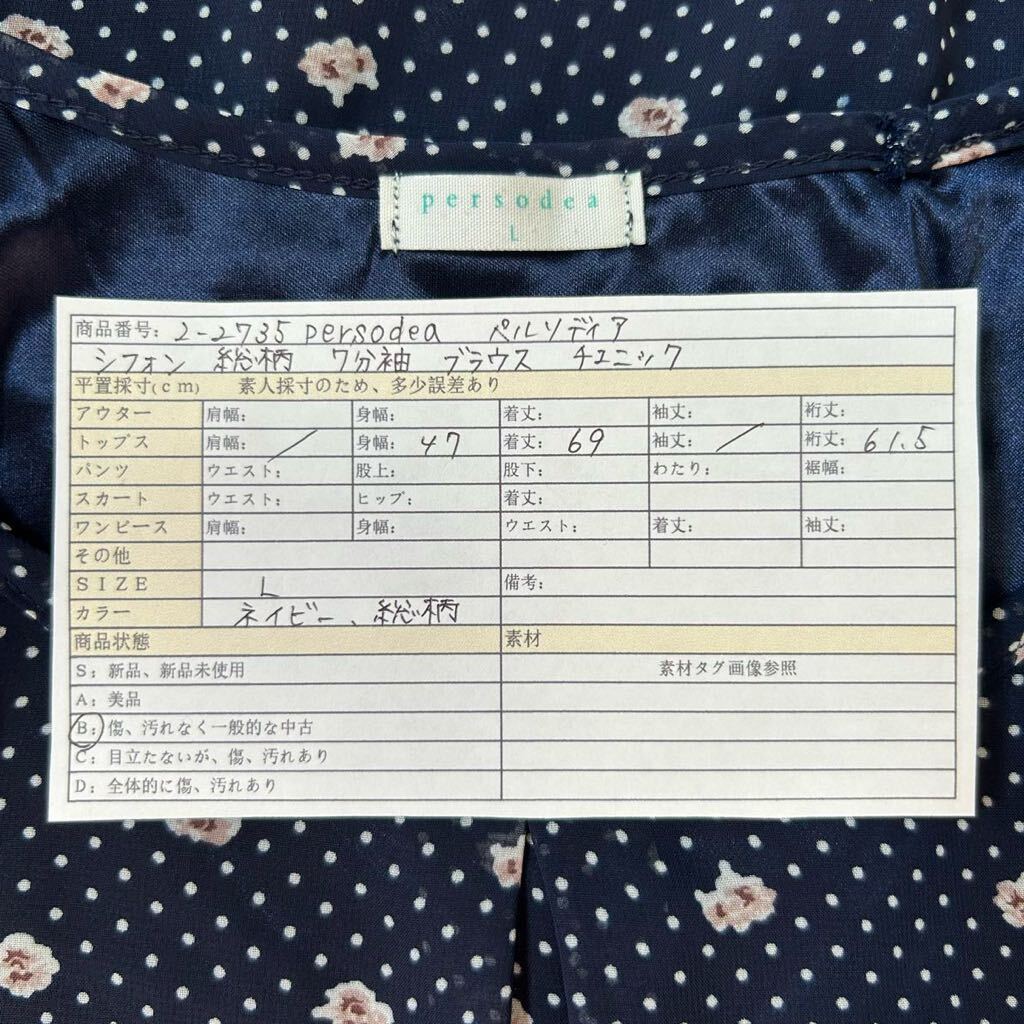 persodea
L
商品番号: 2-2735 persodea ペルソディア
シフォン 総柄 7分袖 ブラウス チュニック
平置採寸(cm) 素人採寸のため、多少誤差あり
アウター 肩幅: 身幅: 着丈: 袖丈: 裄丈:
トップス 肩幅: / 身幅: 47 着丈: 69 袖丈: / 裄丈: 61.5
パンツ ウエスト: 股上: 股下: わたり: 裾幅:
スカート ウエスト: ヒップ: 着丈:
ワンピース 肩幅: 身幅: ウエスト: 着丈: 袖丈:
その他
SIZE L 備考:
カラー ネイビー、総柄
商品状態 素材
S: 新品、新品未使用 素材タグ画像参照
A: 美品
B: 傷、汚れなく一般的な中古
C: 目立たないが、傷、汚れあり
D: 全体的に傷、汚れあり